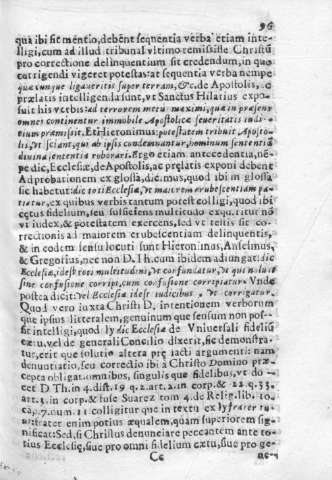 96
qua ibi fit mentio, debent sequentia verba etiam inte-
lligi, cum ad illud tribunal vltimo remisisse Christũ
pro correctione delinquentium sit credendum, in quo
corrigendi vigeret potestas: at sequentia verba nempe
quæcunque ligaueritis super terram, &c. de Apostolis, e
prælatis intelligenda sunt, vt Sanctus Hilarius expo-
suit his verbis: ad terrorem metu maximi, qua in præsens
omnes continentur immobile Apostolicæ seueritatis indi-
cium præmisit. Et Hieronimus: potestatem tribuit Aposto-
lis, vt sciant, qui ab ipsis condemnantur, hominum sententiã
diuina sententia roborari. Ergo etiam antecedentia, nē-
pe dic, Ecclesiæ, de Apostolis, ac prælatis exponi debent
Ad probationem ex glossa, dicimus, quod ibi in glossa
sic habetur: dic toti Ecclesiæ, vt maiorem erubescentiam pa-
tiatur, ex quibus verbis tantum potest colligi, quod ibi
cœtus fidelium, seu sufficiens multitudo exquiritur nõ
vt iudex, & potestatem exercens, sed vt testis sit co-
rrectionis ad maiorem erubescentiam delinquentis,
& in eodem sensu locuti sunt Hieronimus, Anselmus,
& Gregorius, nec non D. Th. cum ibidem adiungat: dic
Ecclesiæ, idest toti multitudini, vt confundatur, vt qui noluit
sine confusione corripi, cum confusione corripiatur. Vnde
postea dicit: vel Ecclesiæ idest iudicibus, vt corrigatur.
Quod vero iuxta Christi D. intentionem verborum
que ipsius litteralem, genuinum que sensum non pos-
sit intelligi, quod ly dic Ecclesiæ de Vniuersali fidelium
cœtu, vel de generali Concilio dixerit, sic demonstra-
tur, erit que solutio altera præiacti argumenti: nam
denuntiatio, seu correctio ibi a Christo Domino præ-
cepta obligat omnibus, singulis que fidelibus, vt do-
cet D Th. in 4. dist. 19 q. 2. art. 2. in corp. & 22. q. 33.
art. 1. in corp. & fuse Suarez tom 4. de Relig. lib. 10.
cap. 7. num. 11 colligitur que in textu ex ly frater tu-
us: frater enim potius æqualem, quam superiorem sig-
nificat: Sed, si Christus denunciare peccantem ante to-
tius Ecclesiæ, siue pro omni fidelium cœtu, siue pro ge-
Cc